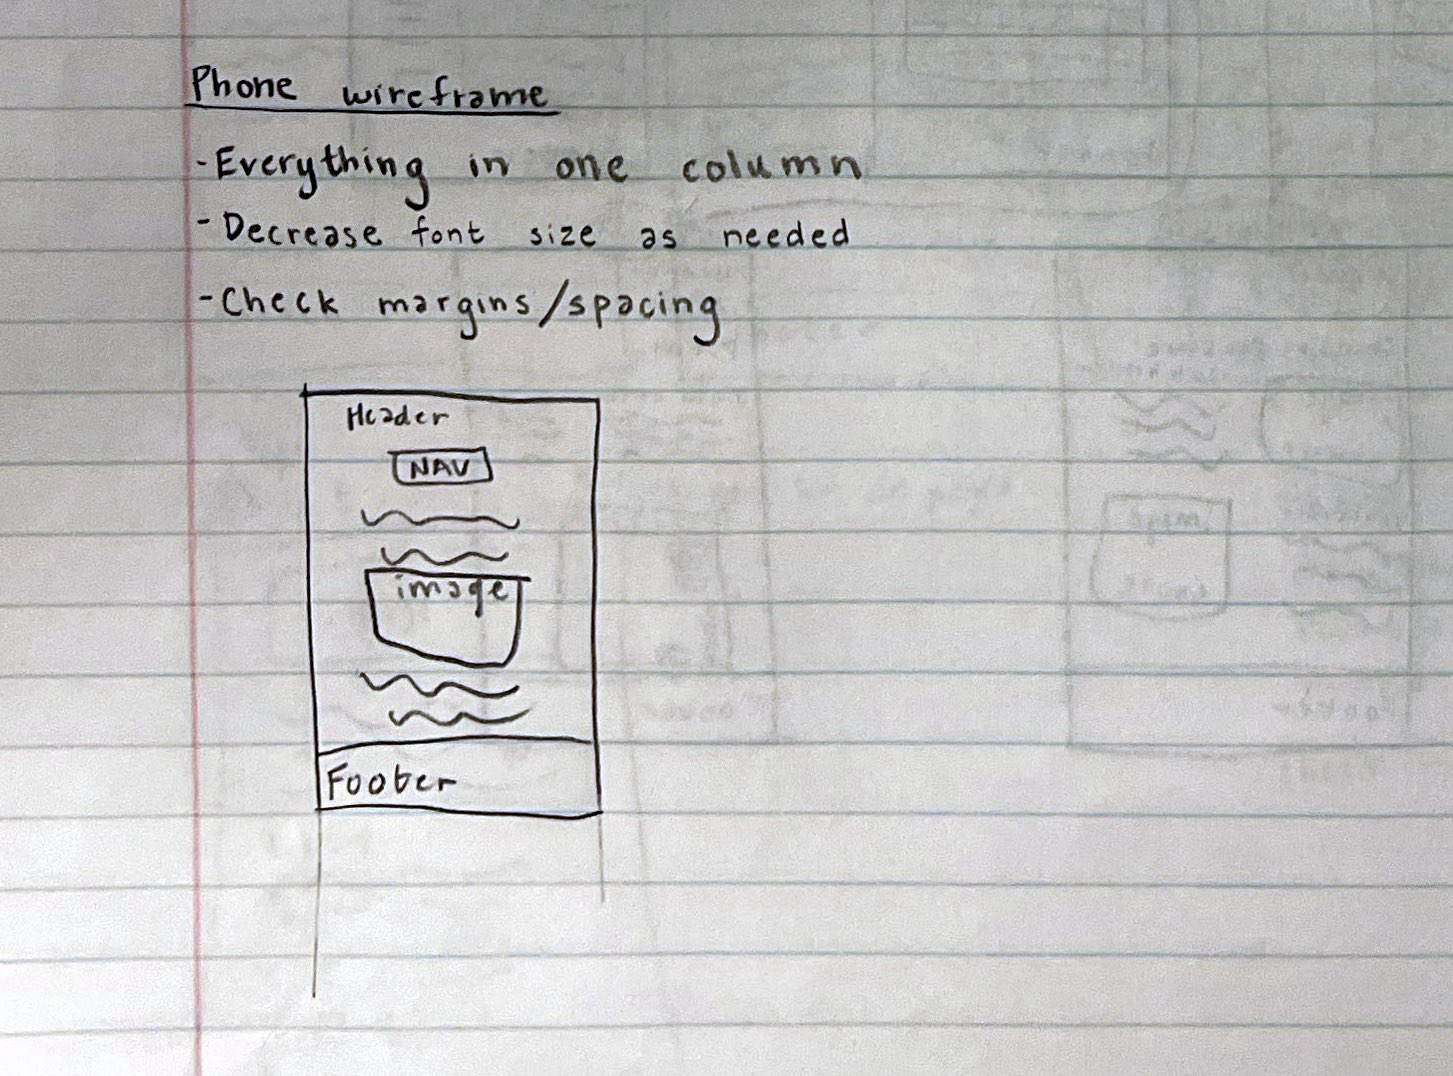 Phone wireframe
- Everything in one column
- Decrease font size as needed
- Check margins/spacing
Header
NAV
image
Footer